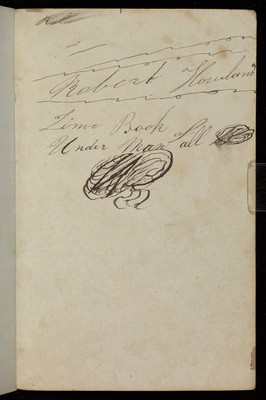 Robert Howland
Time Book
Under Man